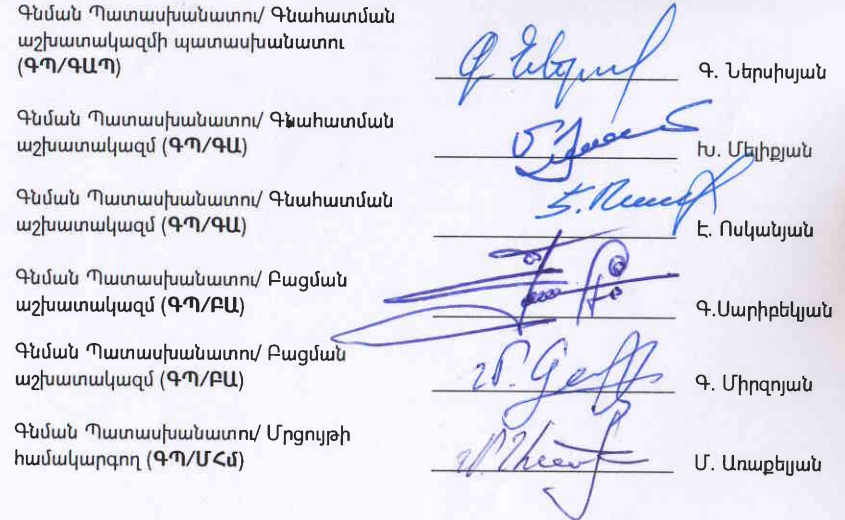 Գնման Պատասխանատու/ Գնահատման
աշխատակազմի պատասխանատու
(ԳՊ/ԳԱՊ)
Գ. Ներսիսյան
Գնման Պատասխանատու/ Գնահատման
աշխատակազմ (ԳՊ/ԳԱ)
Խ. Մելիքյան
Գնման Պատասխանատու/ Գնահատման
աշխատակազմ (ԳՊ/ԳԱ)
Է. Ոսկանյան
Գնման Պատասխանատու/ Բացման
աշխատակազմ (ԳՊ/ԲԱ)
Գ.Սարիբեկյան
Գնման Պատասխանատու/ Բացման
աշխատակազմ (ԳՊ/ԲԱ)
Գ. Միրզոյան
Գնման Պատասխանատու/ Մրցույթի
համակարգող (ԳՊ/ՄՀմ)
Մ. Առաքելյան